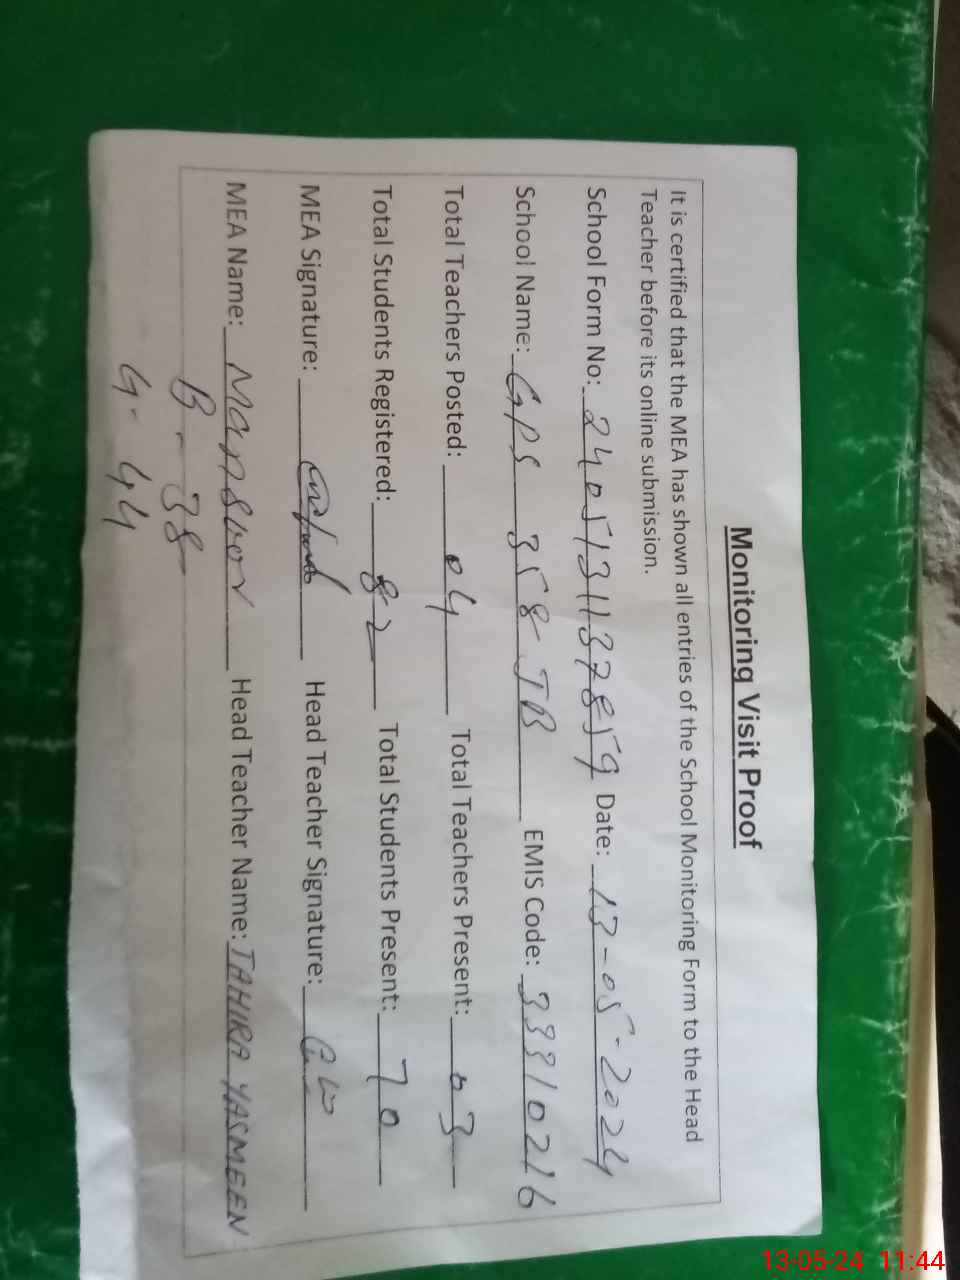 Monitoring Visit Proof
It is certified that the MEA has shown all entries of the School Monitoring Form to the Head
Teacher before its online submission.
School Form No: 2405131137859 Date: 13-05-2024
School Name: GPS 358 JB EMIS Code: 33310216
Total Teachers Posted: 04 Total Teachers Present: 03
Total Students Registered: 82 Total Students Present: 70
MEA Signature: Head Teacher Signature:
MEA Name: Mansoor Head Teacher Name: TAHIRA YASMEEN
B - 38
G - 44
13-05-24 11:44